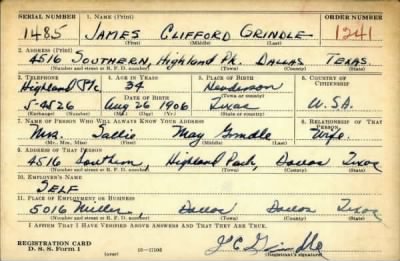 SERIAL NUMBER 1. NAME (Print) ORDER NUMBER
1485 JAMES CLIFFORD GRINDLE 1241
(First) (Middle) (Last)
2. ADDRESS (Print)
4516 SOUTHERN, Highland Pk. DALLAS TEXAS.
(Number and street or R. F. D. number) (Town) (County) (State)
3. TELEPHONE 4. AGE IN YEARS 5. PLACE OF BIRTH 6. COUNTRY OF CITIZENSHIP
Highland Pk. 34 Henderson
DATE OF BIRTH (Town or county)
5-4526 Aug 26 1906 Texas U.S.A.
(Exchange) (Number) (Mo.) (Day) (Yr.) (State or country)
7. NAME OF PERSON WHO WILL ALWAYS KNOW YOUR ADDRESS 8. RELATIONSHIP OF THAT PERSON
Mrs. Sallie May Grindle Wife.
(Mr., Mrs., Miss) (First) (Middle) (Last)
9. ADDRESS OF THAT PERSON
4516 Southern, Highland Park, Dallas Texas
(Number and street or R. F. D. number) (Town) (County) (State)
10. EMPLOYER'S NAME
SELF
11. PLACE OF EMPLOYMENT OR BUSINESS
5016 Miller, Dallas Dallas Texas
(Number and street or R. F. D. number) (Town) (County) (State)
I AFFIRM THAT I HAVE VERIFIED ABOVE ANSWERS AND THAT THEY ARE TRUE.
REGISTRATION CARD
D. S. S. Form 1 (over) J C Grindle
(Registrant's signature)